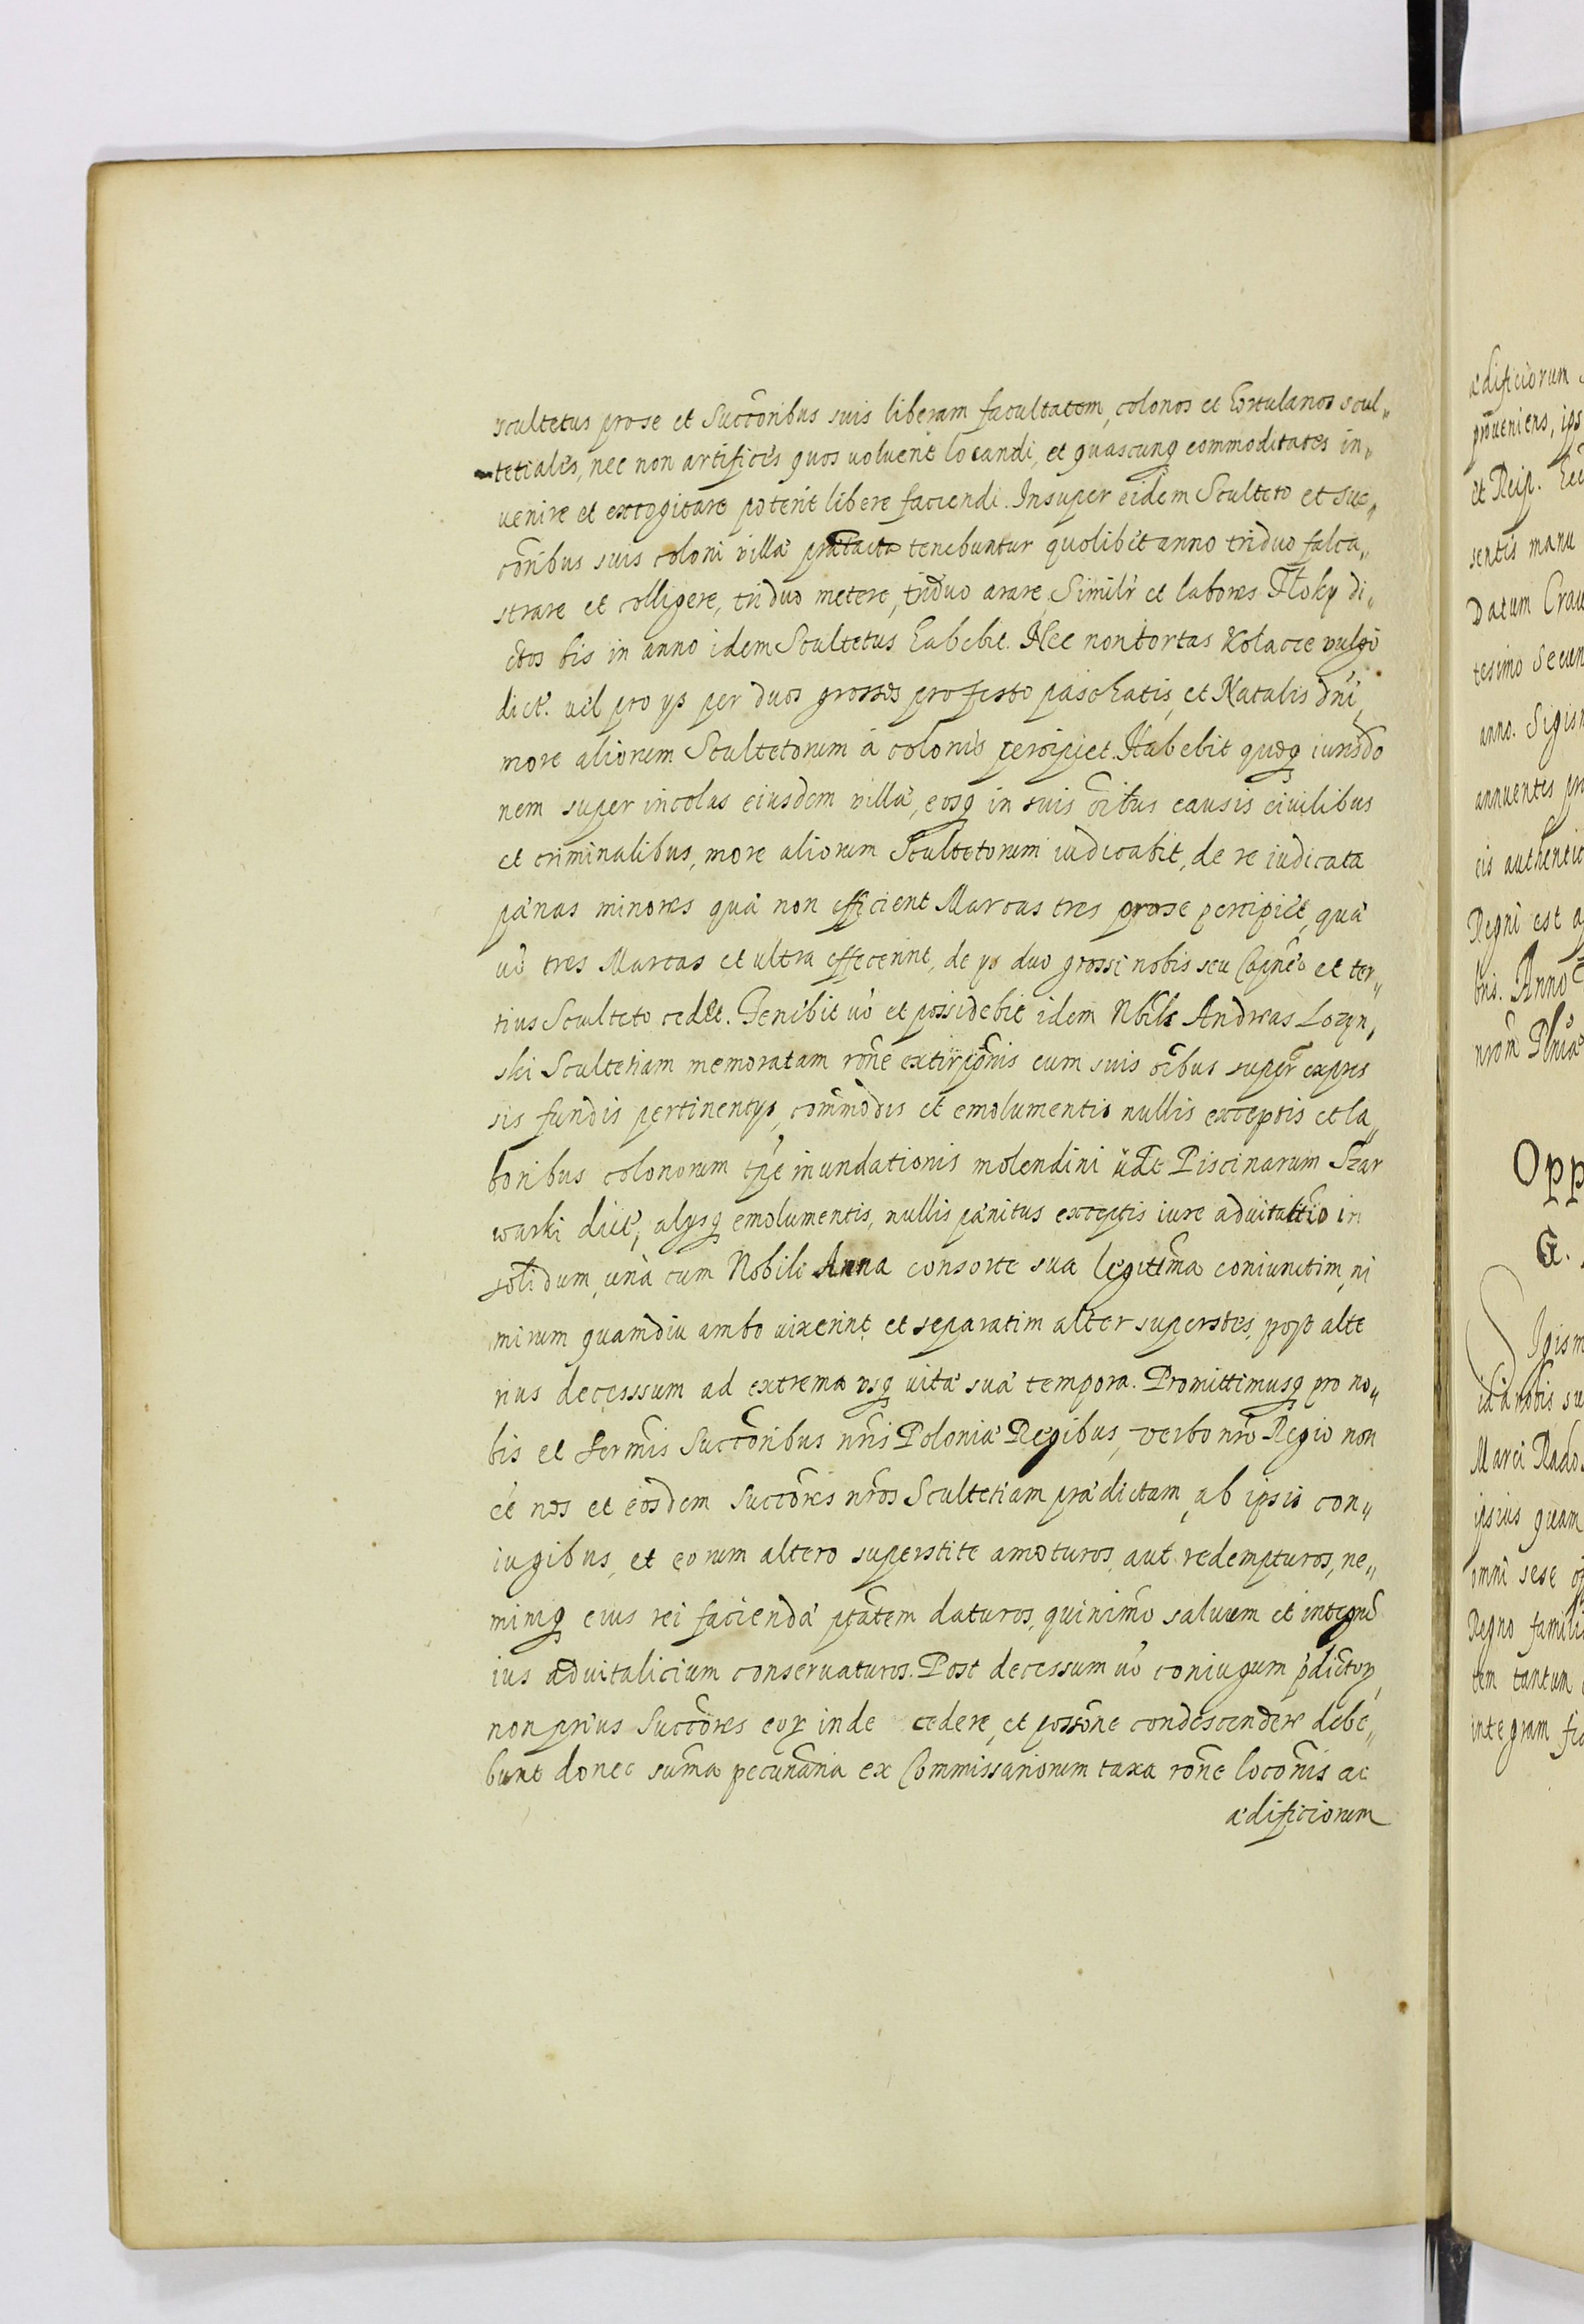 scultetus pro se et Succõribus suis liberam facultatem, colonos et hortulanos scul„
tetiales, nec non artifices quos voluerit locandi, et quascunq commoditates in„
uenire et excogitare poterit libere faciendi. Insuper eidem Sculteto et suc„
cõribus suis coloni villæ prætactæ tenebuntur quolibet anno triduo falca„
strare et colligere, triduo metere, triduo arare, Similr et labores Tloky di„
ctos bis in anno idem Scultetus habebit. Nec non tortas Kolacze vulgo
dict. vel pro ijs per duos grossos pro festo paschatis, et Natalis dñi,
more aliorum Scultetorum à colonis percipiet. Habebit quoq iurisdo
nem super incolas eiusdem villæ, eosq in suis õibus causis ciuilibus
et criminalibus, more aliorum Scultetorum iudicabit, de re iudicata
pænas minores quæ non efficient Marcas tres pro se percipiet, quæ
vo tres Marcas et ultra effecerint, de ijs duo grossi nobis seu Capneo et ter„
tius Sculteto cedet. Tenebit vo et possidebit idem Nbilis Andreas Lozyn„
ski Scultetiam memoratam rõne extirpõnis cum suis õibus super expres
sis fundis pertinentijs, commodis et emolumentis nullis exceptis et la„
boribus colonorum tpe inundationis molendini udt Piscinarum Szar
warki dict, alijsq emolumentis, nullis pænitus exceptis iure aduitalitio in
solidum, unà cum Nobili Anna consorte sua legitima coniunctim, ni
mirum quamdiu ambo vixerint et separatim alter superstes, post alte
rius decesssum ad extrema vsq vitæ suæ tempora. Promittimusq pro no„
bis et Sermis Succõribus nris Poloniæ Regibus, verbo nro Regio non
eé nos et eosdem Succõres nros Scultetiam prædictam, ab ipsis con„
iugibus, et eorum altero superstite amoturos, aut redempturos, ne„
miniq eius rei faciendæ ptatem daturos, quinimo saluum et integru
ius aduitalicium conseruaturos. Post decessum vo coniugum pdictor,
non prius Succõres eor inde cedere, et possõne condescendere debe„
bunt donec suma pecuniaria ex Commissariorum taxa rõne locõnis ac
ædificiorum
ædificiorum
proueniens, ips
et Reip.
sentis manu
Datum Crac
tesimo Secun
anno. Sigis
annuentes
eis authentic
Regni est
bris. Anno
Opp
G.
Igism
Marci Rado
ipsius quam
omni sese
Regno famili
tem tantum
integram